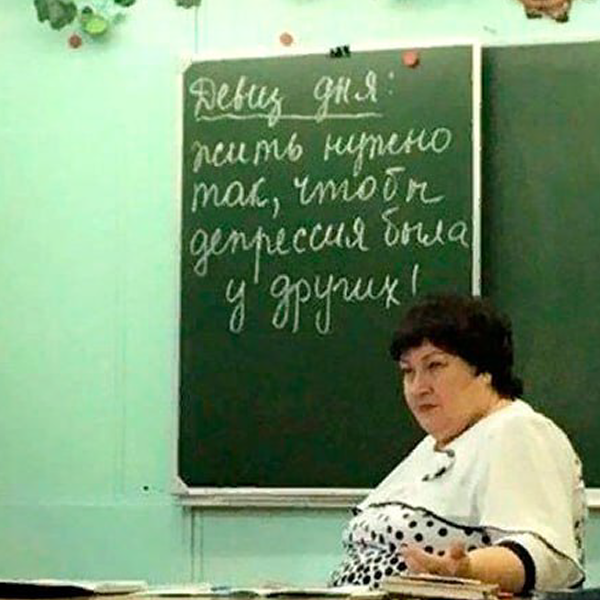 Девиз дня:
жить нужно
так, чтобы
депрессия была
у других!